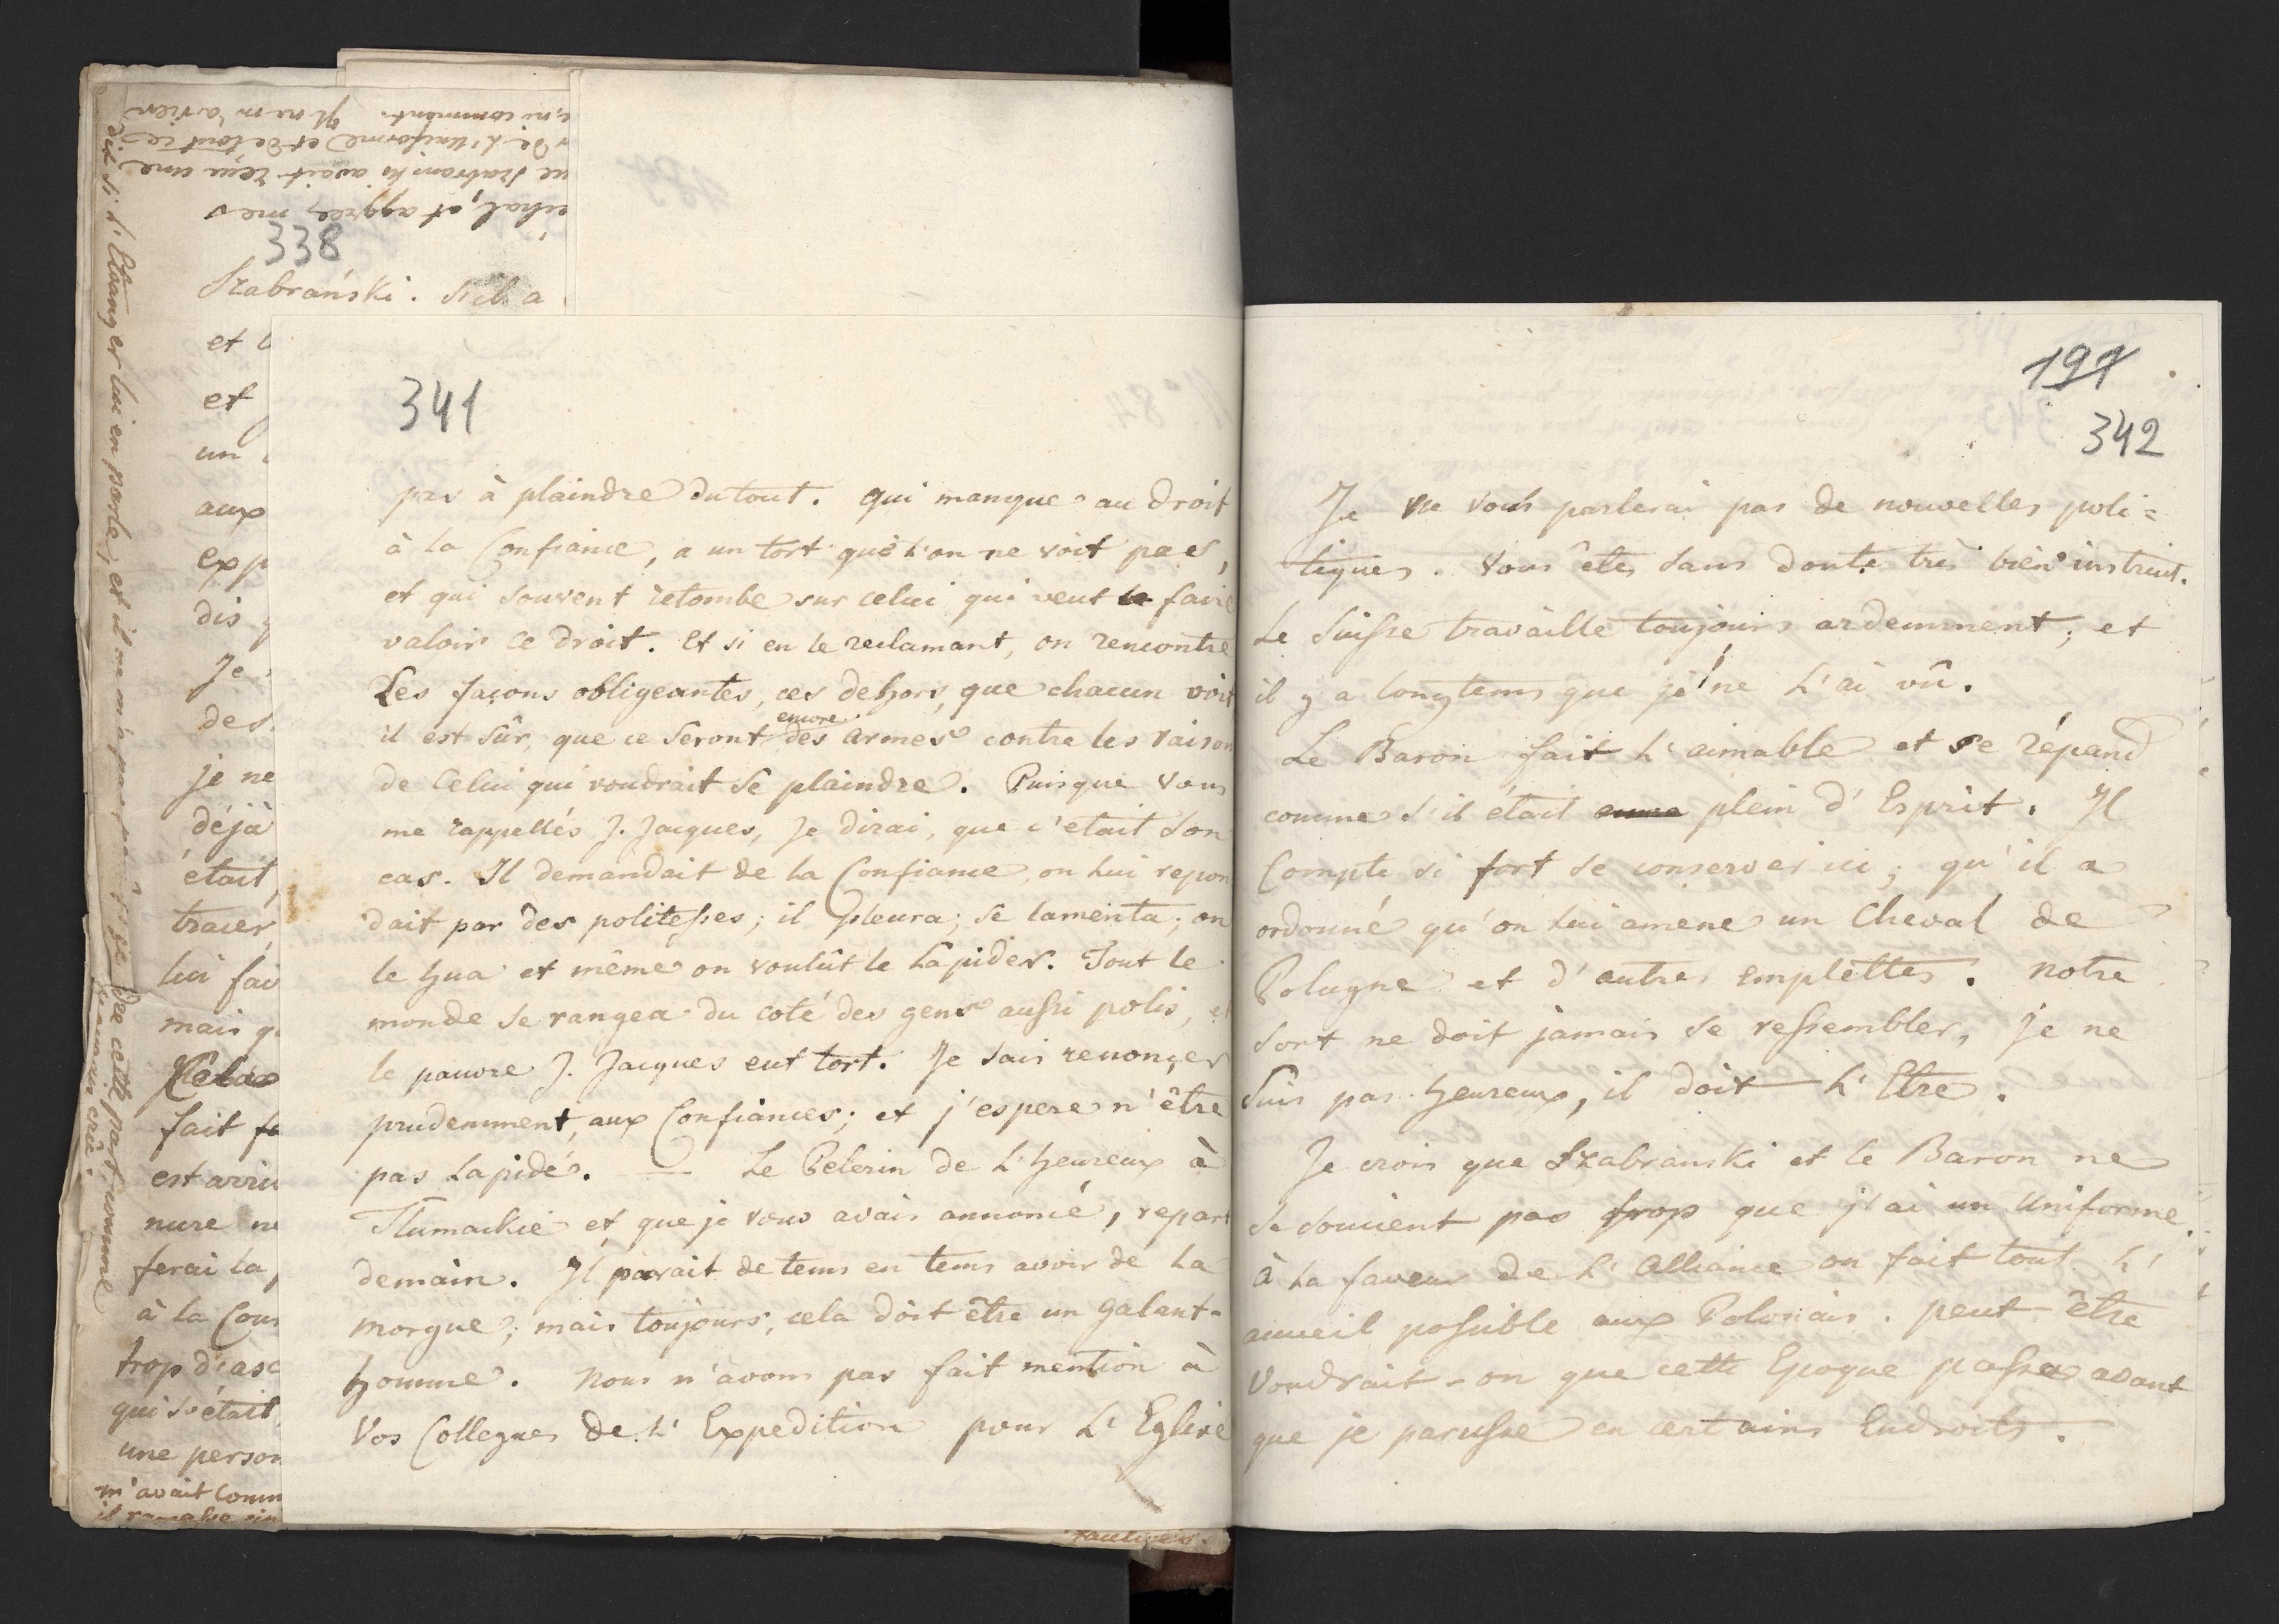 338
Szabrański. S'il a
et
et
un
aux
exp
dis
Je
des
je ne
déjà
était
tracer
lui fai
mais q
fait
est arriv
nure ne
ferai la
à la Cour
trop d'asc
qui s'était
une person
m'avait Comm
dit si L'Etranger lui en parle; et il
de cette part, comme
ni comment. Il ne m'a rien
de L'Uniforme et de tout ce
ue Szabranski avait reçu une
échal, et aggréez mes
341
pas à plaindre du tout. qui manque au droit
à la Confiance, a un tort què l'on ne voit pas,
et qui souvent retombe sur celui qui veut le faire
valoir ce droit. Et si en le reclamant, on rencontre
Les façons obligeantes, ces dehors, que chacun voit
il est sûr, que ce seront encore des armes contre les raison
de Celui qui voudrait se plaindre. Puisque Vous
me rappellés J. Jacques, Je dirai, que c'etait son
cas. Il demandait de la Confiance, on Lui repon
dait par des politesses; il pleura; se lamenta; on
le hua et même on voulût le Lapider. Tout le
monde se rangea du coté des gens aussi polis, et
le pauvre J. Jacques eut tort. Je sais renonçer
prudemment, aux Confiances; et j'espere n'être
pas Lapidé. — Le Pelerin de L'heureux à
Tlumackie et que je vous avais annoncé, repart
demain. Il parait de tems en tems avoir de La
morgue; mais toujours, cela doit être un Galant-
homme. Nous n'avons pas fait mention à
Vos Collegues de L'Expedition pour L'Eglise
191
342
Je ne vous parlerai pas de nouvelles poli=
tiques. Vous êtes sans doute très bien instruit.
Le Suisse travaille toujours ardemment; et
il y a longtems que je ne L'ai vû.
Le Baron fait L'aimable et se répand
comme s'il était plein d'Esprit. Il
Compte si fort se conserver ici; qu'il a
ordonné qu'on Lui amene un Cheval de
Pologne et d'autres emplettes. Notre
sort ne doit jamais se ressembler, je ne
suis pas heureux, il doit L'Etre.
Je crois que Szabranski et le Baron ne
se soucient pas trop que j'ai un Uniforme.
à La faveur de L'Alliance on fait tout L'
acueil possible aux Polonais. peut-être
Voudrait-on que cette Epoque passa avant
que je parusse en certains Endroits.